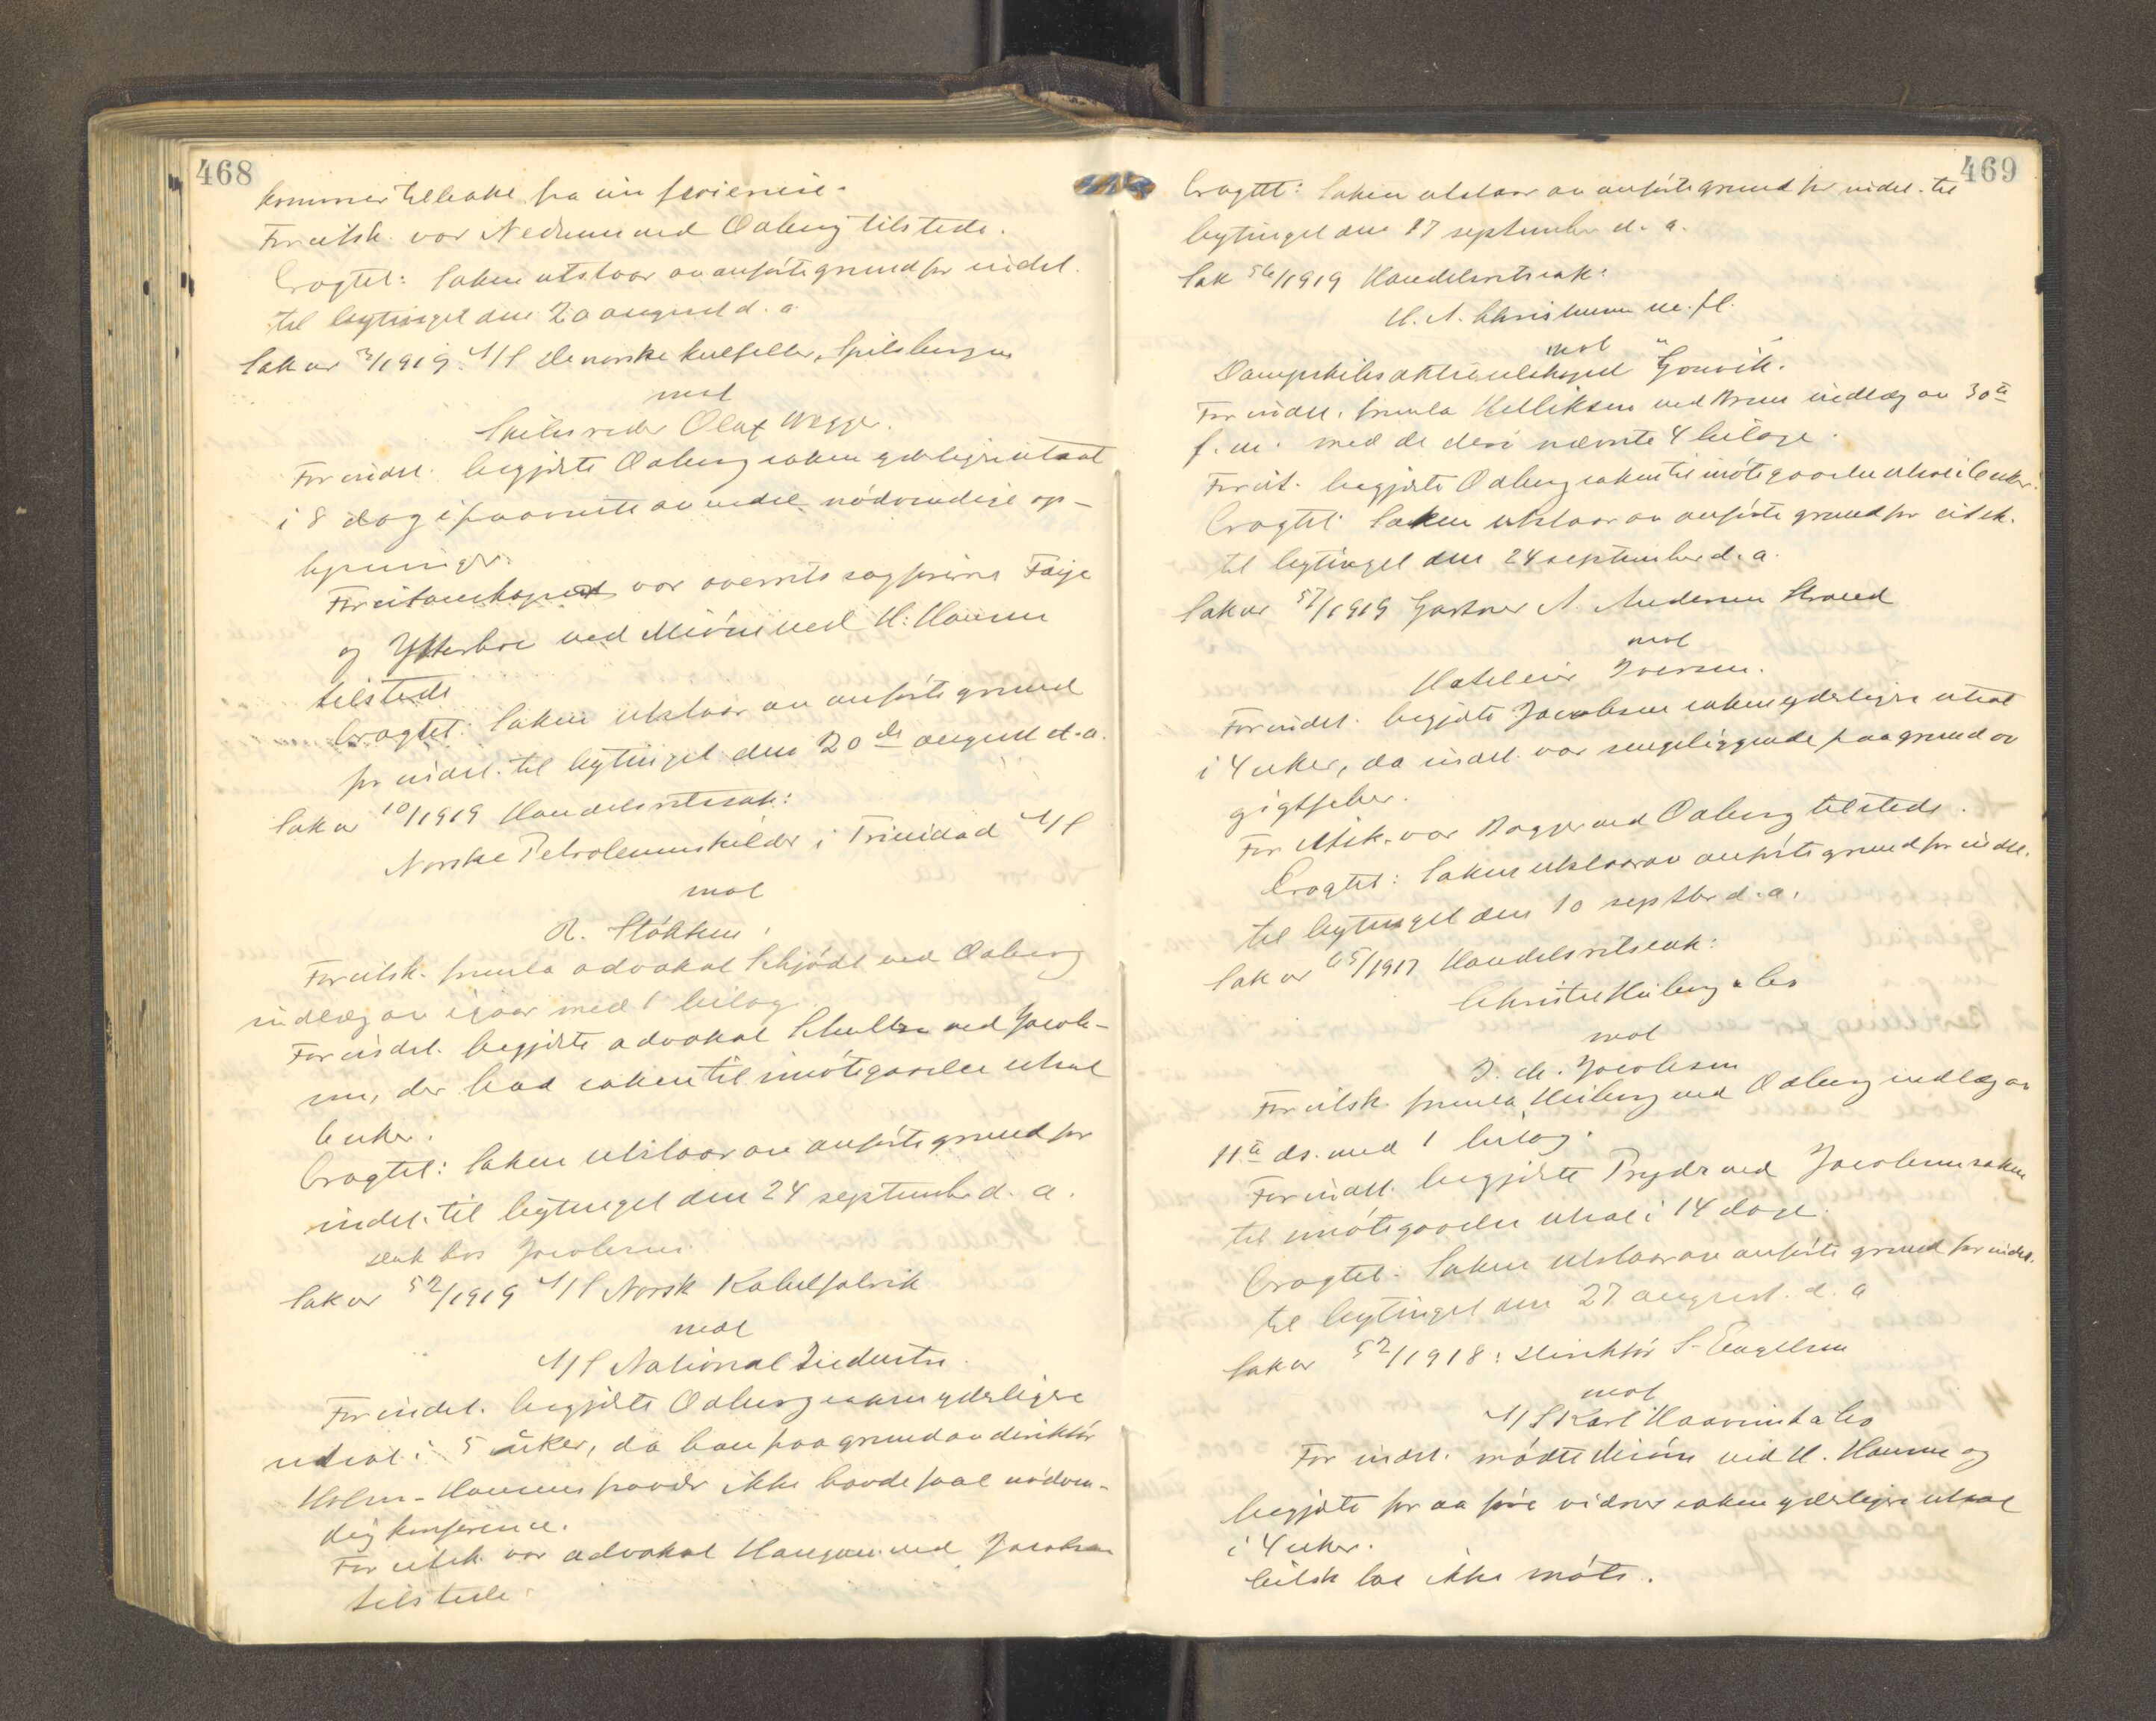 468
kommer tilbake fra sin ferierejse.
For citsk. var Nedrum ved Oaberg tilstede.
Eragtet: Saken utstaar av anførte grund for indst.
til bytinget den 20 august d. a.
Sak nr 3/1919. A/S De norske kulfelter, Spitsbergen
mot
Skibsreder Olaf Wegger.
For indst. begjærte Oaberg saken yderligere utsat
i 8 dage i paavente av endel nødvendige op-
lysninger.
For citanskapet var overretssagførerne Faye
og Ytterboe ved Miøen ved H. Hansen
tilstede
Eragtet: Saken utstaar av anførte grund
for indst. til bytinget den 20de august d. a.
Sak nr 10/1919 Handelsretssak:
Norske Petroleumskilder i Trinidad A/S
mot
R. Støkken.
For citsk. fremla advokat Schjødt ved Oaberg
indlæg av igaar med 1 bilag.
For indst. begjærte advokat Schultze ved Jacob-
sen, der bad saken til imøtegaaelse utsat
6 uker.
Eragtet: Saken utstaar av anførte grund for
indst. til bytinget den 24 september d. a.
Dok hos Jacobsen.
Sak nr 52/1919 A/S Norsk Kabelfabrik
mot
A/S National Industri.
For indst. begjærte Oaberg saken yderligere
utsat i 5 uker, da han paa grund av direktør
Holm-Hansens fravær ikke havde faat nødven-
dig konference.
For citsk. var advokat Haugen ved Jacobsen
tilstede.
469
Eragtet: Saken utstaar av anførte grund for indst. til
bytinget den 17 september d. a.
Sak 56/1919 Handelsretssak:
H. A. Christensen m. fl.
mot
Dampskibsaktieselskapet "Gonvik".
For indst. fremla Helliksen ved Bruun indlæg av 30te
f. m. med de deri nævnte 4 bilage.
For cit. begjærte Oaberg saken til imøtegaaelse utsat i 6 uker.
Eragtet: Saken utstaar av anførte grund for citsk.
til bytinget den 24 september d. a.
Sak nr 57/1919 Gartner A. Andersen Strand
mot
Hoteleier Iversen.
For indst. begjærte Jacobsen saken yderligere utsat
i 4 uker, da indst. var sengeliggende paa grund av
gigtfeber.
For citsk. var Bogge ved Oaberg tilstede.
Eragtet: Saken utstaar av anførte grund for indst.
til bytinget den 10 septbr d. a.
Sak nr 65/1917 Handelsretssak:
Christie Heiberg & Co
mot
J. M. Jacobsen
For citsk. fremla Heiberg ved Oaberg indlæg av
11te ds. med 1 bilag.
For indst. begjærte Prydz ved Jacobsen saken
til imøtegaaelse utsat i 14 dage.
Eragtet: Saken utstaar av anførte grund for indst.
til bytinget den 27 august d. a
Sak nr 52/1918: Direktør S. Engelsen
mot
A/S Karl Haavind & Co
For indst. mødte Miøen ved H. Hansen og
begjærte for aa føre vidner saken yderligere utsat
i 4 uker.
Citsk lot ikke møte.